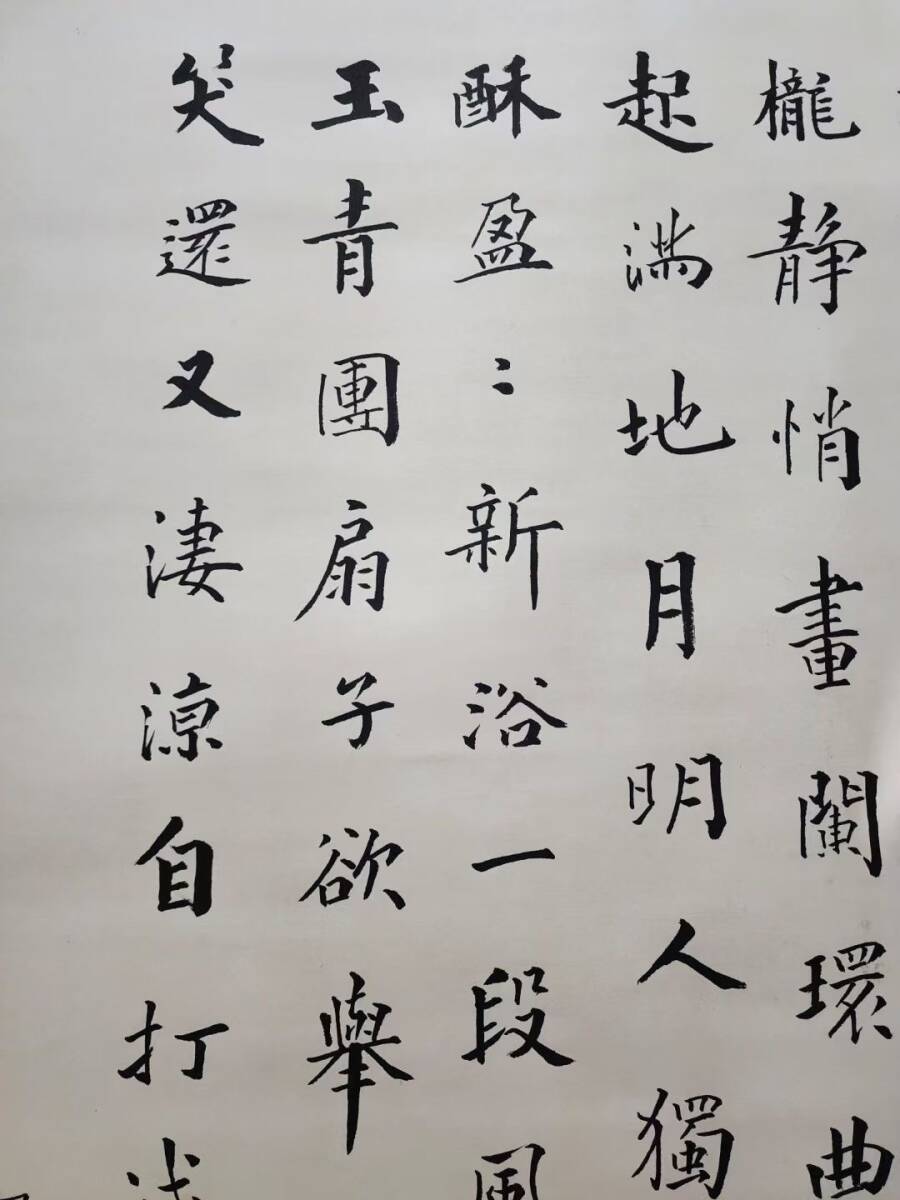 櫳静悄畫闌環曲
起滿地月明人獨
酥盈〻新浴一段風
玉青團扇子欲舉
還又淒涼自打